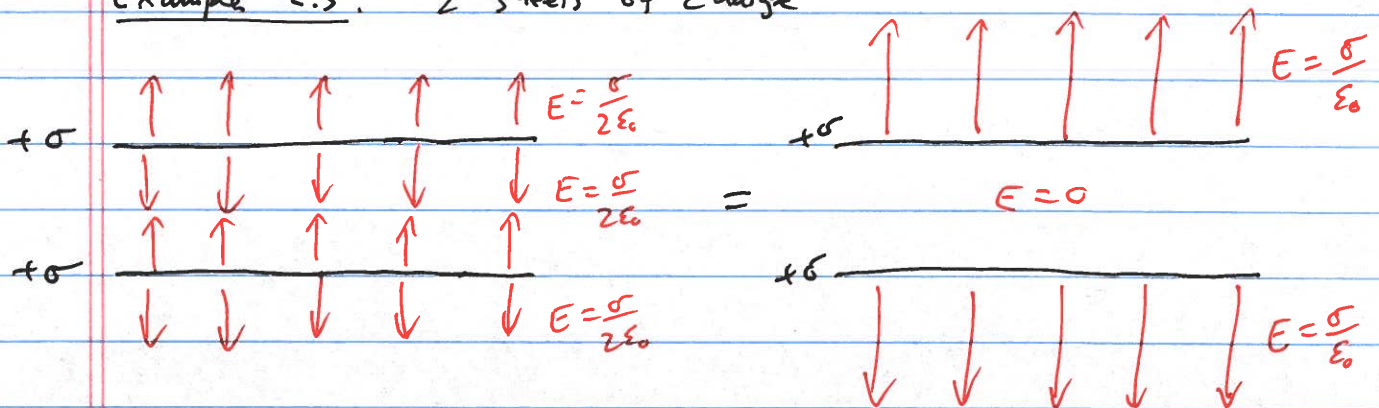 Example 2.3: 2 sheets of charge
E = σ/ε₀
E = σ/2ε₀
+σ
+σ
E = σ/2ε₀
=
E = 0
+σ
+σ
E = σ/2ε₀
E = σ/ε₀